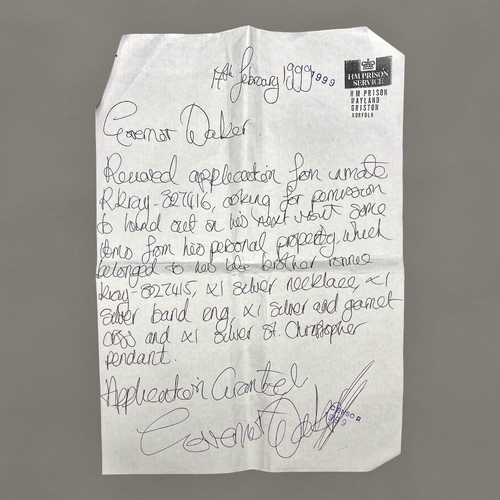 14th february 1999 1999
HM PRISON
SERVICE
HM PRISON
WAYLAND
GRISTON
NORFOLK
Governor Daker.
Received application from inmate
R.Kray-827416, asking for permission
to hand out on his next visit some
items from his personal property, which
belonged to his late brother ronnie
Kray-827415, x1 silver necklace, x1
silver band eng, x1 silver and garnet
cross and x1 silver st. Christopher
pendant.
Application Granted
Governor Daker
CENSOR
1999